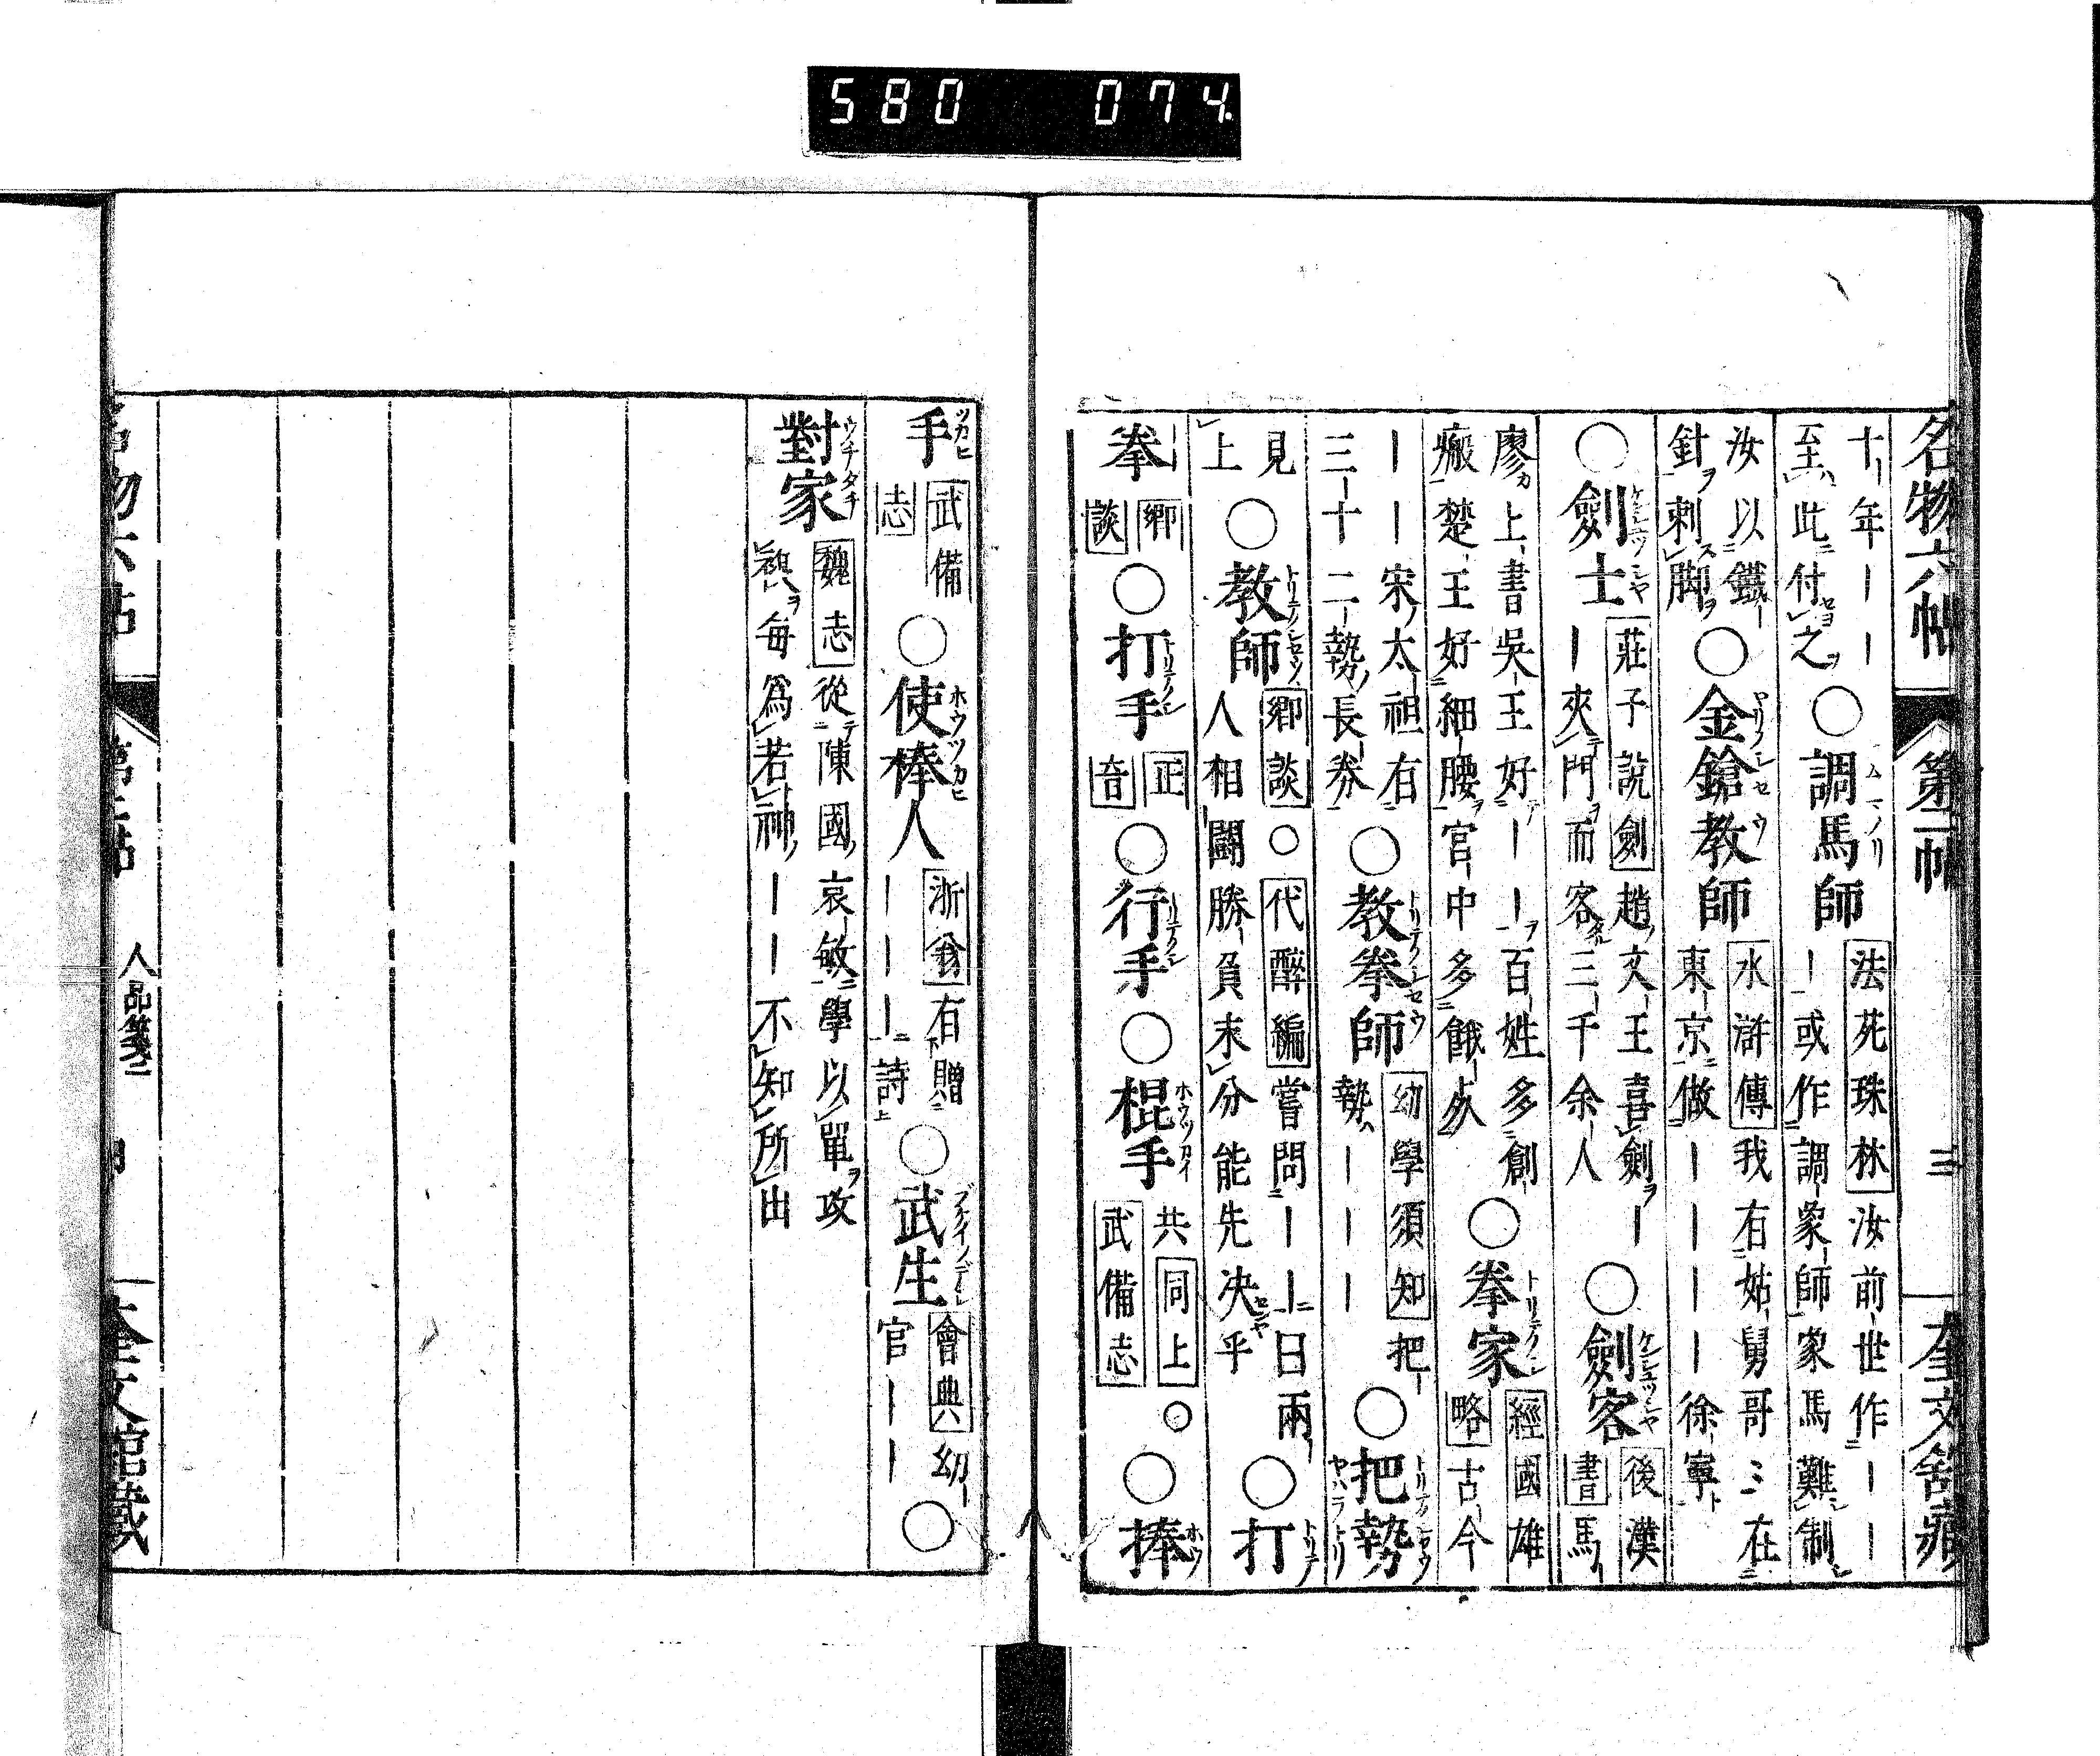 580 074.
名物六帖 第二帖 三 奎文館藏
十年｜｜ ○調馬師 法苑珠林 汝前世作｜｜
至此付之 ｜或作調象師象馬難制
汝以鐵 ○金鎗教師 水滸傳 我有姑舅哥〻在
針刺脚 東京做｜｜｜｜徐寧
○劍士 莊子說劍 趙文王喜劍｜ ○劍客 後漢
｜夾門而客三千余人 書 馬
廖上書吳王好｜｜百姓多創 ○拳家 經國雄
瘢楚王好細腰宮中多餓 略 古今
｜｜宋太祖有 ○教拳師 幼學須知 把 ○把勢
三十二勢長拳 勢｜｜｜
見 ○教師 鄉談 ○ 代醉編 嘗問｜｜日兩 ○打
上 人相鬪勝負未分能先決乎
拳 鄉談 ○打手 正音 ○行手 ○棍手 共同上 武備志 ○ ○捧
手 武備志 ○使棒人 浙翁 有贈｜｜｜詩 ○武生 會典 幼官｜｜ ○
對家 魏志 從陳國哀敏學以單攻
襯每爲若神｜｜不知所出
人品箋二